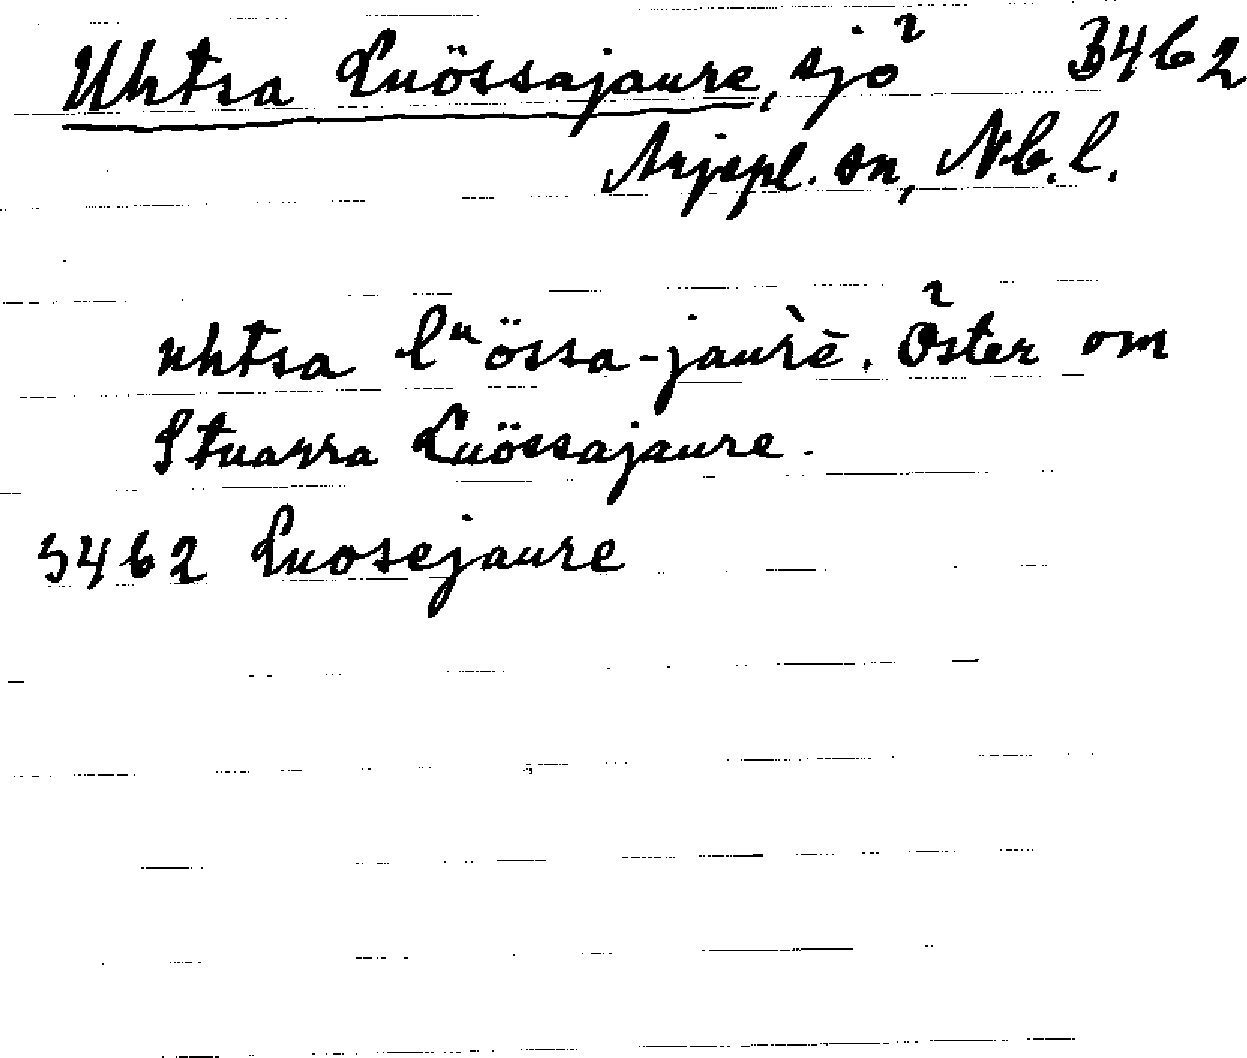 Uhtsa Luössajaure, sjö 3462
Arjepl. sn, Nb. l.
uhtsa lᵘössa-jaùrè̄. Öster om
Stuarra Luössajaure.
3462 Luosejaure